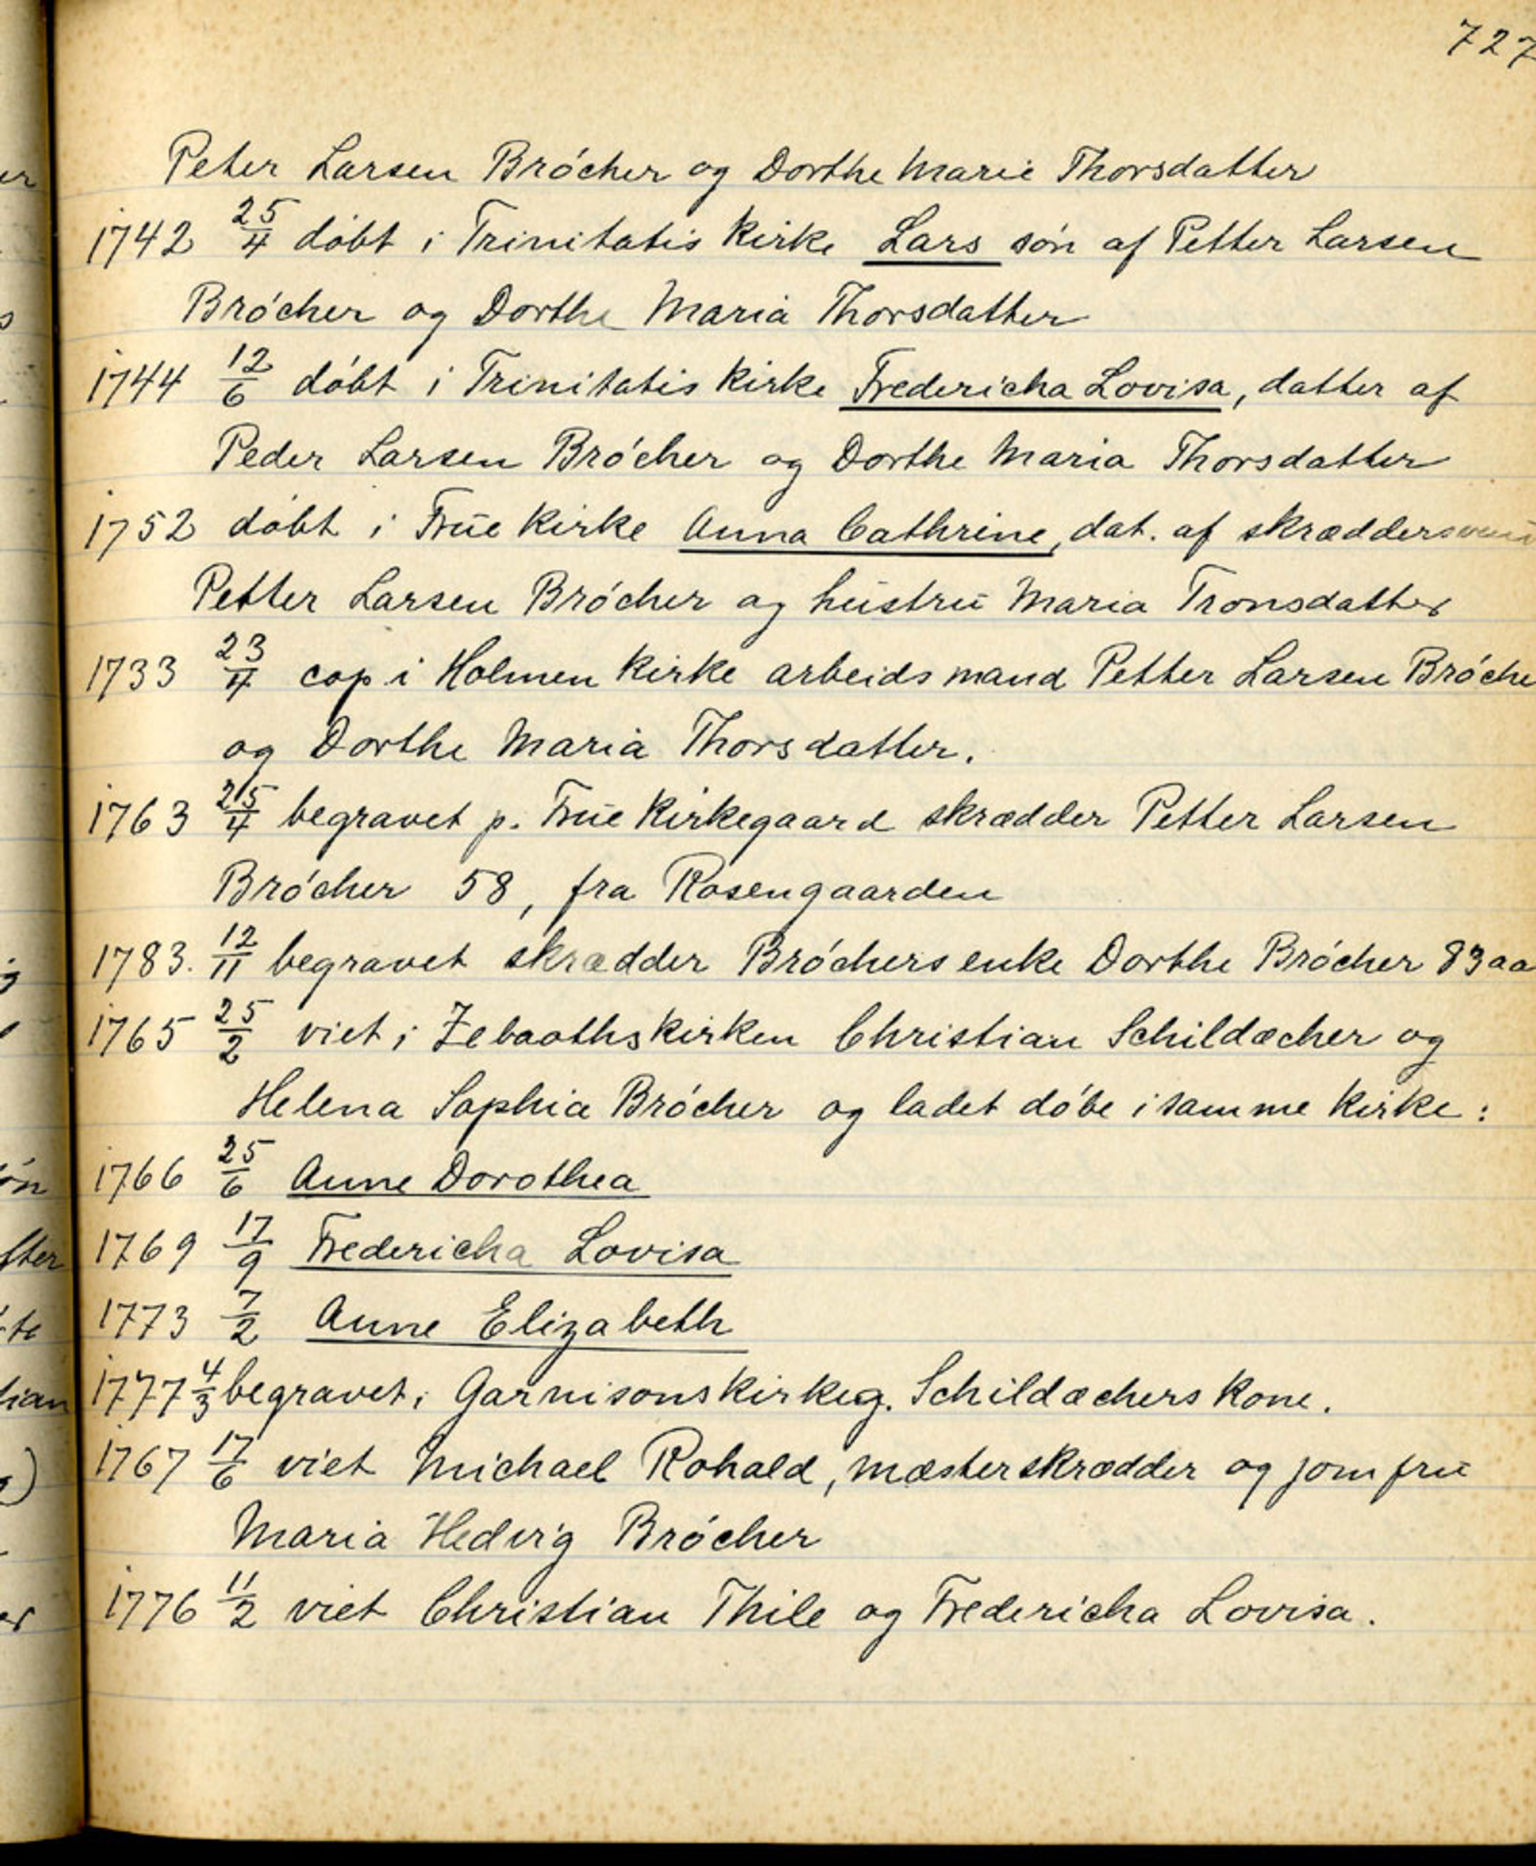 727
Peter Larsen Brócher og Dorthe Marie Thorsdatter
1742 25/4 dóbt i Trinitatis Kirke Lars són af Petter Larsen
Brócher og Dorthe Maria Thorsdatter
1744 12/6 dóbt i Trinitatis Kirke Fredericha Lovisa, datter af
Peder Larsen Brócher og Dorthe Maria Thorsdatter
1752 dóbt i Frūe Kirke Anna Cathrine, dat. af skræddersvend
Petter Larsen Brócher og hūstrū Maria Tronsdatter
1733 23/4 cop i Holmen Kirke arbeidsmand Petter Larsen Bróche
og Dorthe Maria Thorsdatter.
1763 25/4 begravet p. Frūe Kirkegaard skrædder Petter Larsen
Brócher 58, fra Rosengaarden
1783. 12/11 begravet skrædder Bróchers enke Dorthe Brócher 83 aa
1765 25/2 viet i Zebaothskirken Christian Schildæcher og
Helena Sophia Brócher og ladet dóbe i samme Kirke:
1766 25/6 Anne Dorothea
1769 17/9 Fredericha Lovisa
1773 7/2 Anne Elizabeth
1777 4/3 begravet i Garnisonskirkeg. Schildæchers Kone.
1767 17/6 viet Michael Rohald, mæsterskrædder og jomfrū
Maria Hedvig Brócher
1776 11/2 viet Christian Thile og Fredericha Lovisa.